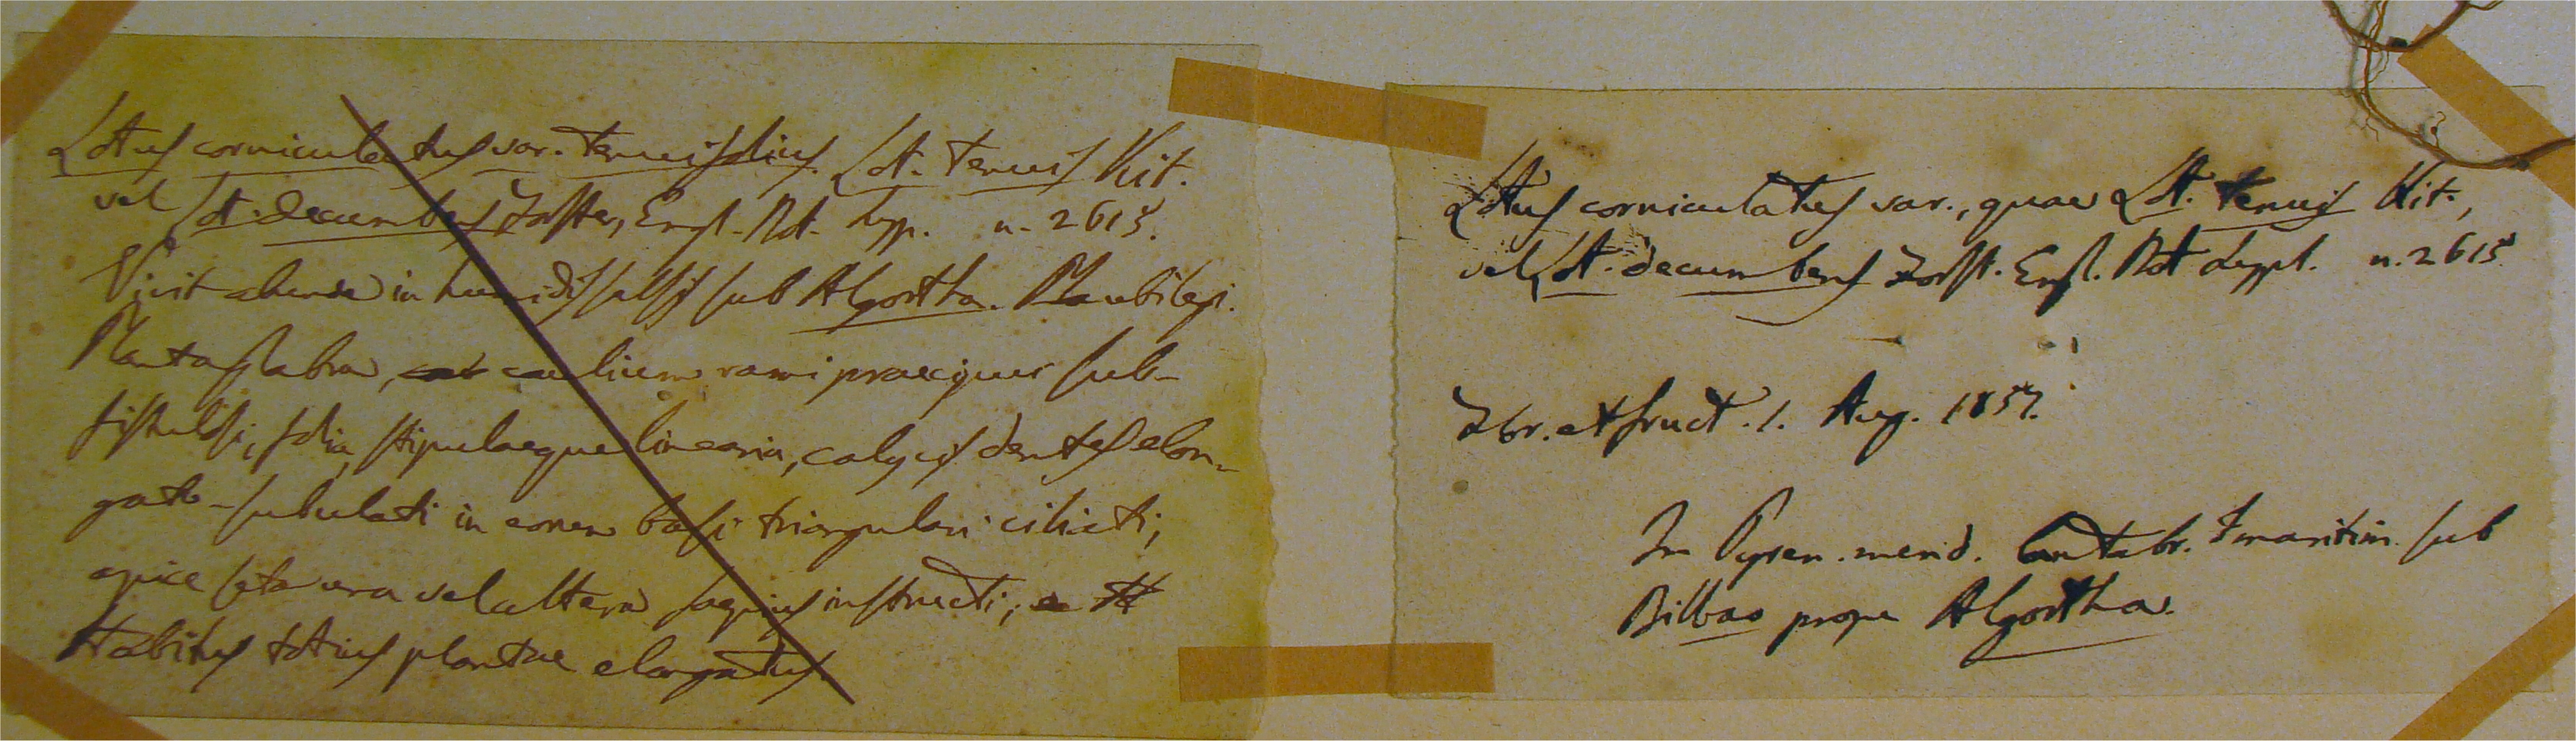 Lotus corniculatus var. tenuifolius. Lot. tenuis Kit.
vel Lot. decumbens Forster, Engl. Bot. Supp. n. 2615.
Vivit abunde in humidis salsis sub Algortha. Planta
Planta glabra, caulium rami praecipue sub-
fistulosi, folia, stipulaeque linearia, calycis dentes elon-
gato-subulati in eorum basi triangulari ciliati;
apice seta una vel altera saepius instructi;
Habitus totius plantae elongatus.
Lotus corniculatus var., quae Lot. tenuis Kit.,
vel Lot. decumbens Forst. Engl. Bot Suppl. n. 2615
Flor. et fruct. 1. Aug. 1857.
In Pyren. merid. Cantabr. maritim. sub
Bilbao prope Algortha.